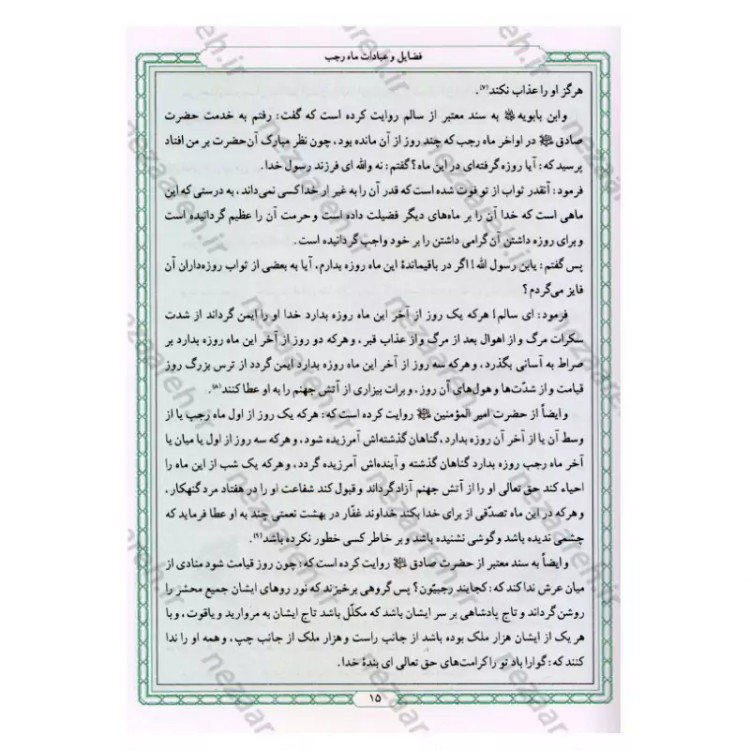 فضایل و عبادات ماه رجب
هرگز او را عذاب نکند(۷).
وابن بابویه به سند معتبر از سالم روایت کرده است که گفت: رفتم به خدمت حضرت
صادق در اواخر ماه رجب که چند روز از آن مانده بود، چون نظر مبارک آن‌حضرت بر من افتاد
پرسید که: آیا روزه گرفته‌ای در این ماه؟ گفتم: نه والله ای فرزند رسول خدا.
فرمود: آنقدر ثواب از تو فوت شده است که قدر آن را به غیر از خدا کسی نمی‌داند، به درستی که این
ماهی است که خدا آن را بر ماه‌های دیگر فضیلت داده است و حرمت آن را عظیم گردانیده است
و برای روزه داشتن آن گرامی داشتن را بر خود واجب گردانیده است.
پس گفتم: یابن رسول الله! اگر در باقیماندهٔ این ماه روزه بدارم، آیا به بعضی از ثواب روزه‌داران آن
فایز می‌گردم؟
فرمود: ای سالم! هرکه یک روز از آخر این ماه روزه بدارد خدا او را ایمن گرداند از شدت
سکرات مرگ و از اهوال بعد از مرگ و از عذاب قبر، و هرکه دو روز از آخر این ماه روزه بدارد بر
صراط به آسانی بگذرد، و هرکه سه روز از آخر این ماه روزه بدارد ایمن گردد از ترس بزرگ روز
قیامت و از شدّت‌ها و هول‌های آن روز، و برات بیزاری از آتش جهنم را به او عطا کنند(۸).
و ایضاً از حضرت امیر المؤمنین روایت کرده است که: هرکه یک روز از اول ماه رجب یا از
وسط آن یا از آخر آن روزه بدارد، گناهان گذشته‌اش آمرزیده شود، و هرکه سه روز از اول یا میان یا
آخر ماه رجب روزه بدارد گناهان گذشته و آینده‌اش آمرزیده گردد، و هرکه یک شب از این ماه را
احیاء کند حق تعالی او را از آتش جهنم آزاد گرداند و قبول کند شفاعت او را در هفتاد مرد گنهکار،
و هرکه در این ماه تصدّقی از برای خدا بکند خداوند غفّار در بهشت نعمتی چند به او عطا فرماید که
چشمی ندیده باشد و گوشی نشنیده باشد و بر خاطر کسی خطور نکرده باشد(۹).
و ایضاً به سند معتبر از حضرت صادق روایت کرده است که: چون روز قیامت شود منادی از
میان عرش ندا کند که: کجایند رجبیّون؟ پس گروهی برخیزند که نور روهای ایشان جمیع محشر را
روشن گرداند و تاج پادشاهی بر سر ایشان باشد که مکلّل باشد تاج ایشان به مروارید و یاقوت، و با
هر یک از ایشان هزار ملک بوده باشد از جانب راست و هزار ملک از جانب چپ، و همه او را ندا
کنند که: گوارا باد تو را کرامت‌های حق تعالی ای بندهٔ خدا.
۱۵
nezaareh.ir